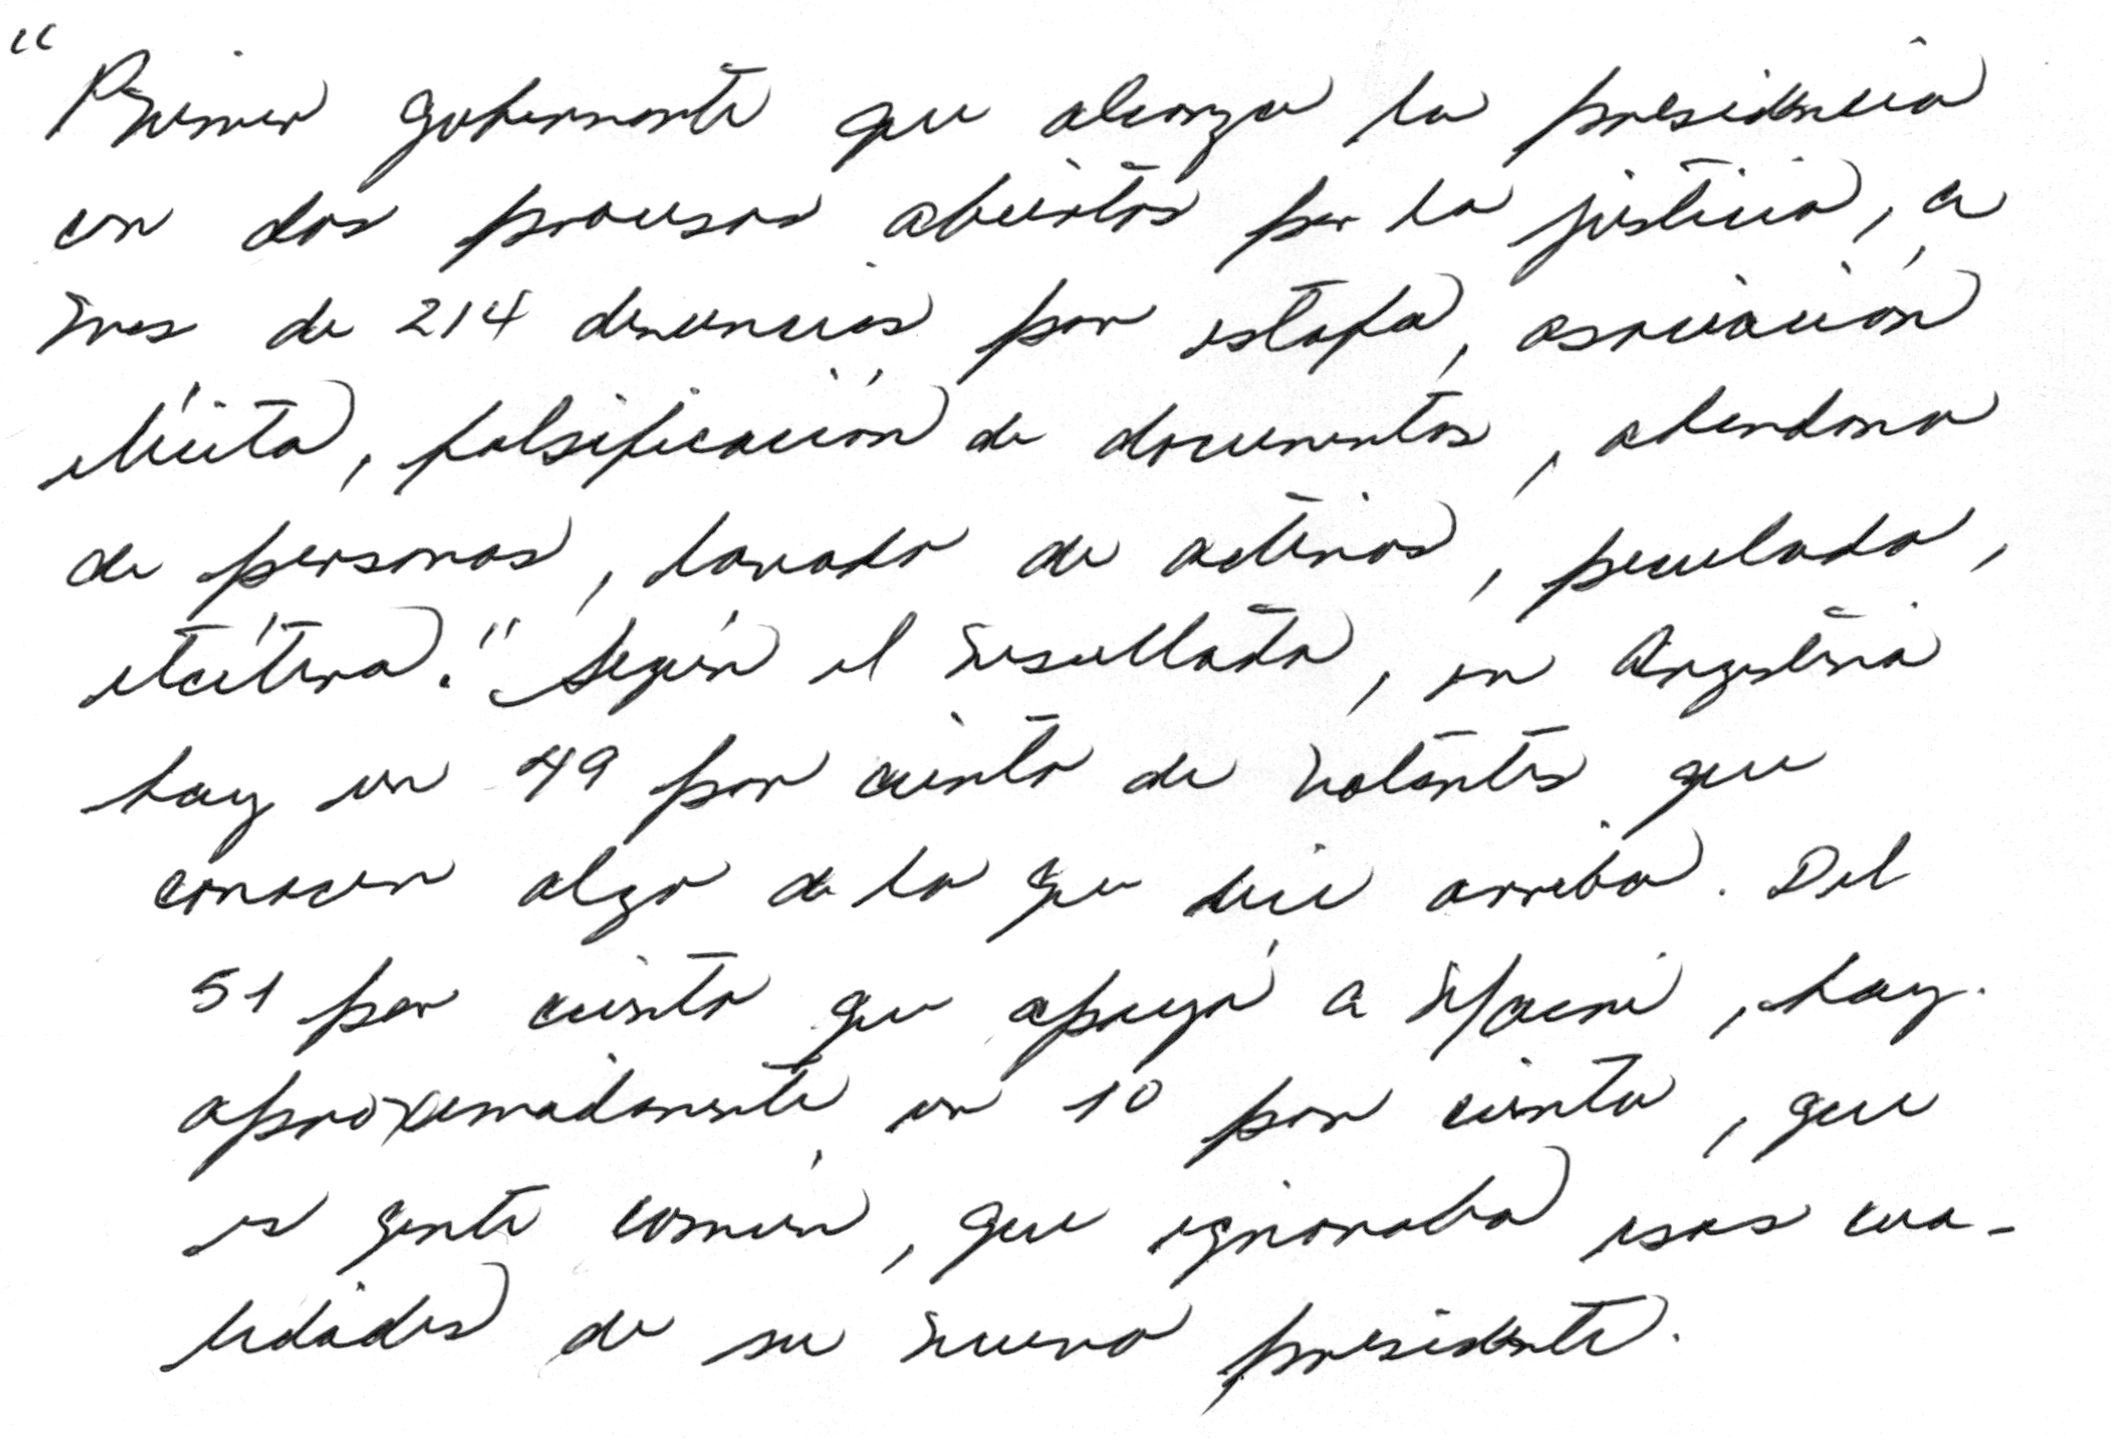 "Primer gobernante que alcanza la presidencia
con dos procesos abiertos por la justicia, a
mas de 214 denuncias por estafa, asociación
ilícita, falsificación de documentos, abandono
de personas, lavado de activos, peculado,
etcétera." Según el resultado, en Argentina
hay un 49 por ciento de votantes que
conocen algo de lo que dice arriba. Del
51 por ciento que apoyó a Macri, hay
aproximadamente un 10 por ciento, que
es gente común, que ignoraba esas cua-
lidades de su nuevo presidente.